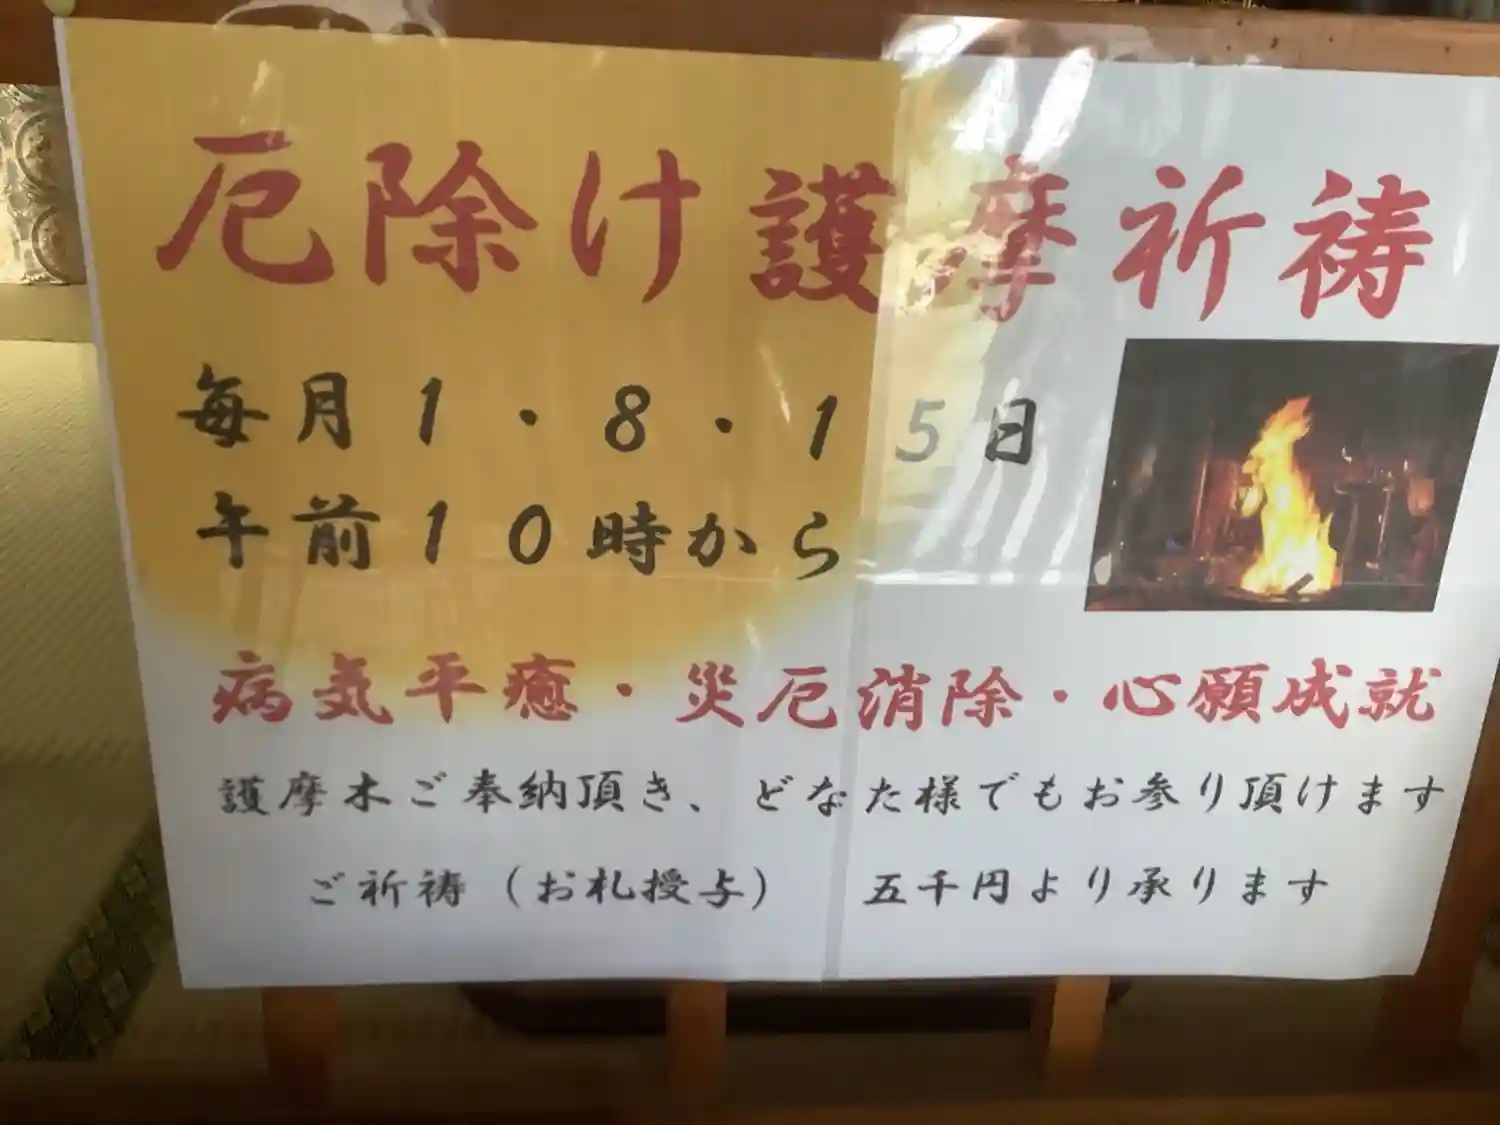 厄除け護摩祈祷
毎月1・8・15日
午前10時から
病気平癒・災厄消除・心願成就
護摩木ご奉納頂き、どなた様でもお参り頂けます
ご祈祷（お札授与）　五千円より承ります